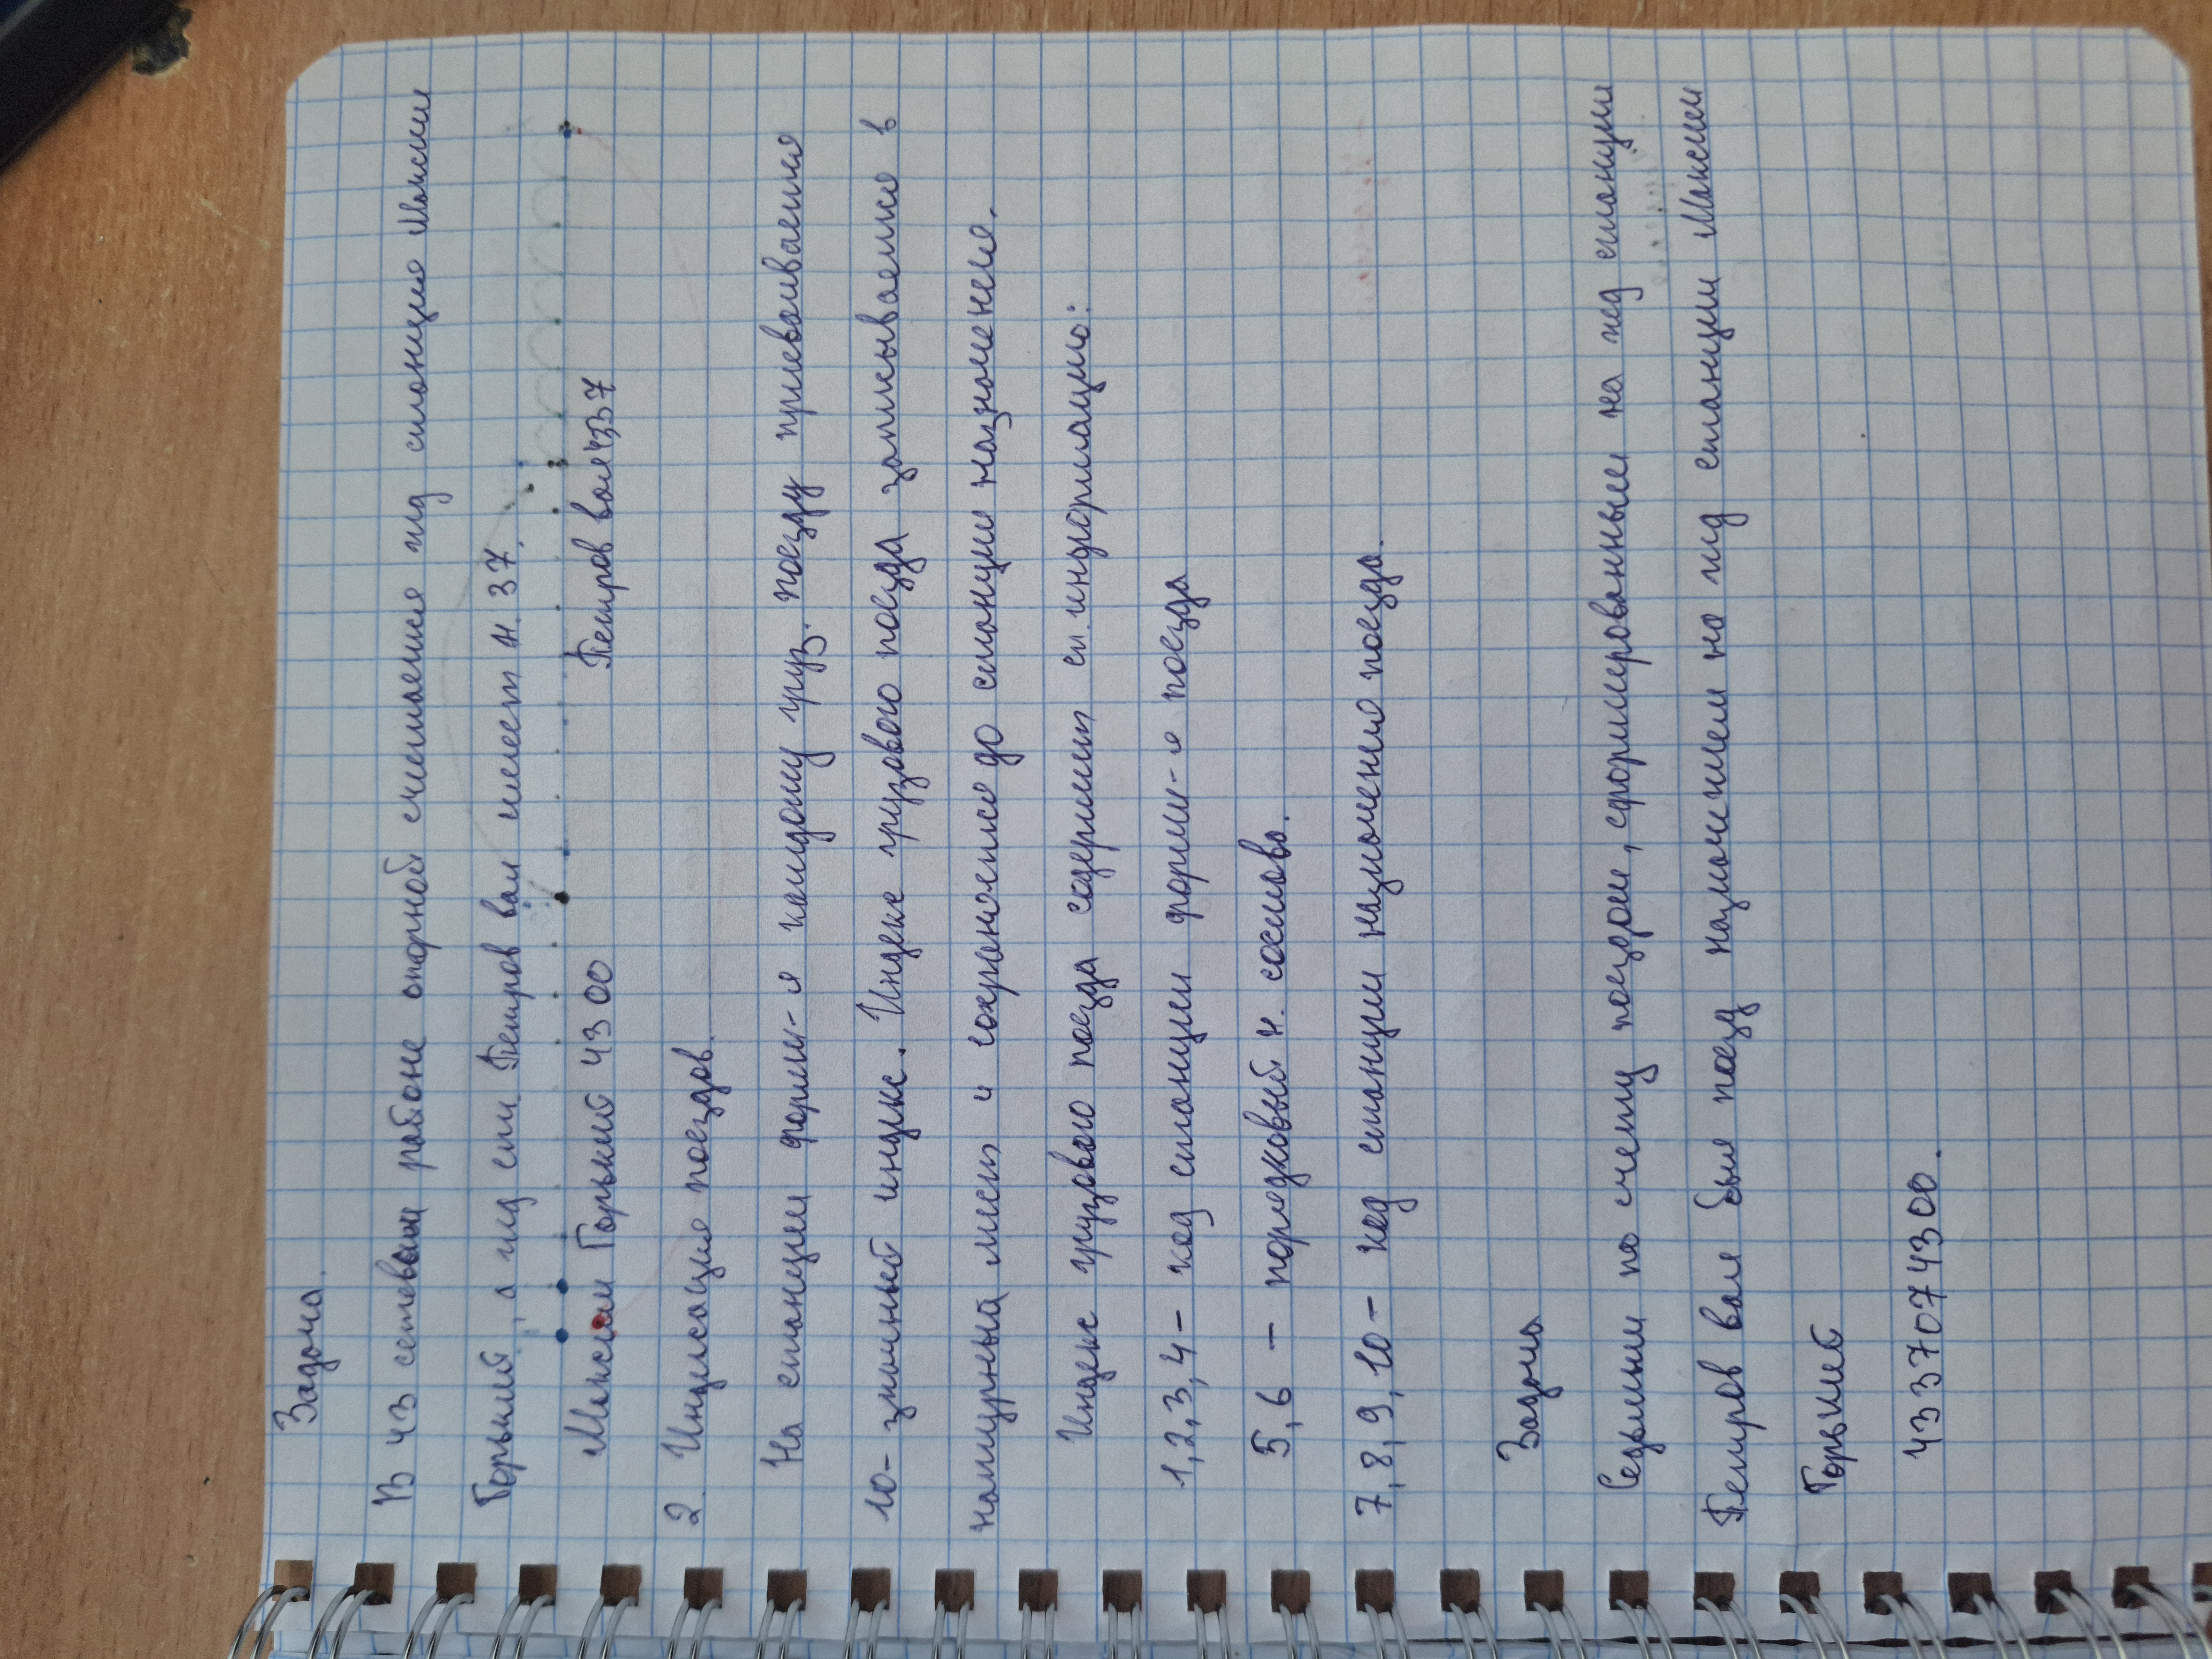 Задача.
В 43 сетевом районе опорной считается жд станция Максим
Горький, а жд ст. Петров вал имеет н. 37.
Максим Горький 4300 Петров вал 4337
2. Индексация поездов.
На станции форми-я каждому груз. поезду присваивается
10-значный индекс. Индекс грузового поезда записывается в
натурный лист и сохраняется до станции назначения.
Индекс грузового поезда содержит сл. информацию:
1,2,3,4 – код станции форми-я поезда
5,6 – порядковый н. состава.
7,8,9,10 – код станции назначения поезда.
Задача
Седьмым по счету поездом, сформированным на жд станции
Петров вал был поезд назначением на жд станции Максим
Горький
4337074300.